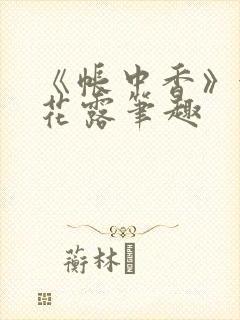 《帐中香》
花露笔趣
蘅林